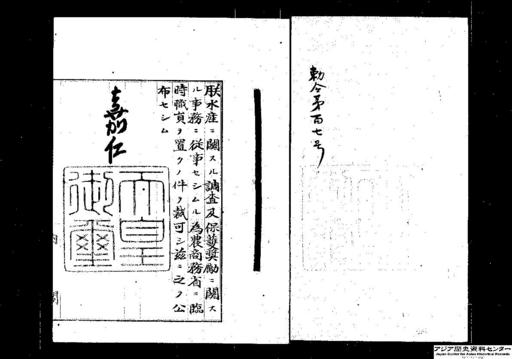 勅令第百七号
朕水産ニ關スル調査及保護奨勵ニ關ス
ル事務ニ從事セシムル為農商務省ニ臨
時職員ヲ置クノ件ヲ裁可シ茲ニ之ヲ公
布セシム
嘉仁
天皇
御璽
内閣
アジア歴史資料センター
Japan Center for Asian Historical Records